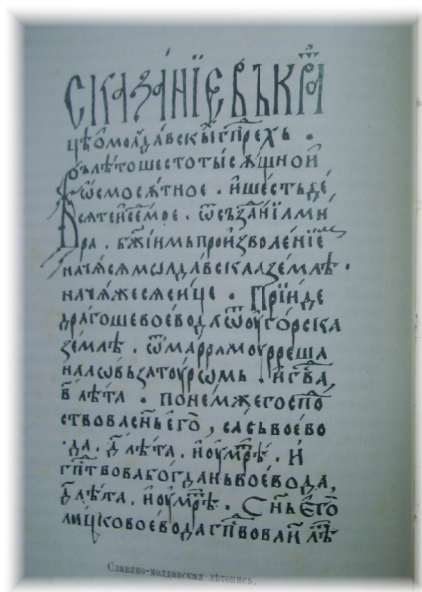 СКАЗА́НЇЄВЪКРА
цѣѡмо́лда́вскыⷯгп҃рехь .
въ лѣто шестотысѧщной
ѿсмосѧ́тное . и҆ шестьде
сѧтеи҆се́мое . ѿ създа́нїа ми
ра . бж҃їимь произволе́нїе
начѧ́сѧ мѡлда́вскаа зе́млѣ .
начѧ́жесѧ си́це . Прїи́де
драго́шевоево́да ѿ оуго́рска
зе́млѣ . ѿ марамоурреша
на ловь за тоуромь . и҆ гпⷭва
в҃ лѣта . по не́мже госпо
ствова сн҃ь его̀, сась воево
да . д҃ лѣта, и҆ оумрѣ . И
гпⷭтвова богда́нь воево́да,
д҃ лѣта, и҆ оумрѣ . Сн҃ь его̀
лицково воево́да гпⷭвова и҃ лѣⷮ
Славяно-молдавская лѣтопись.